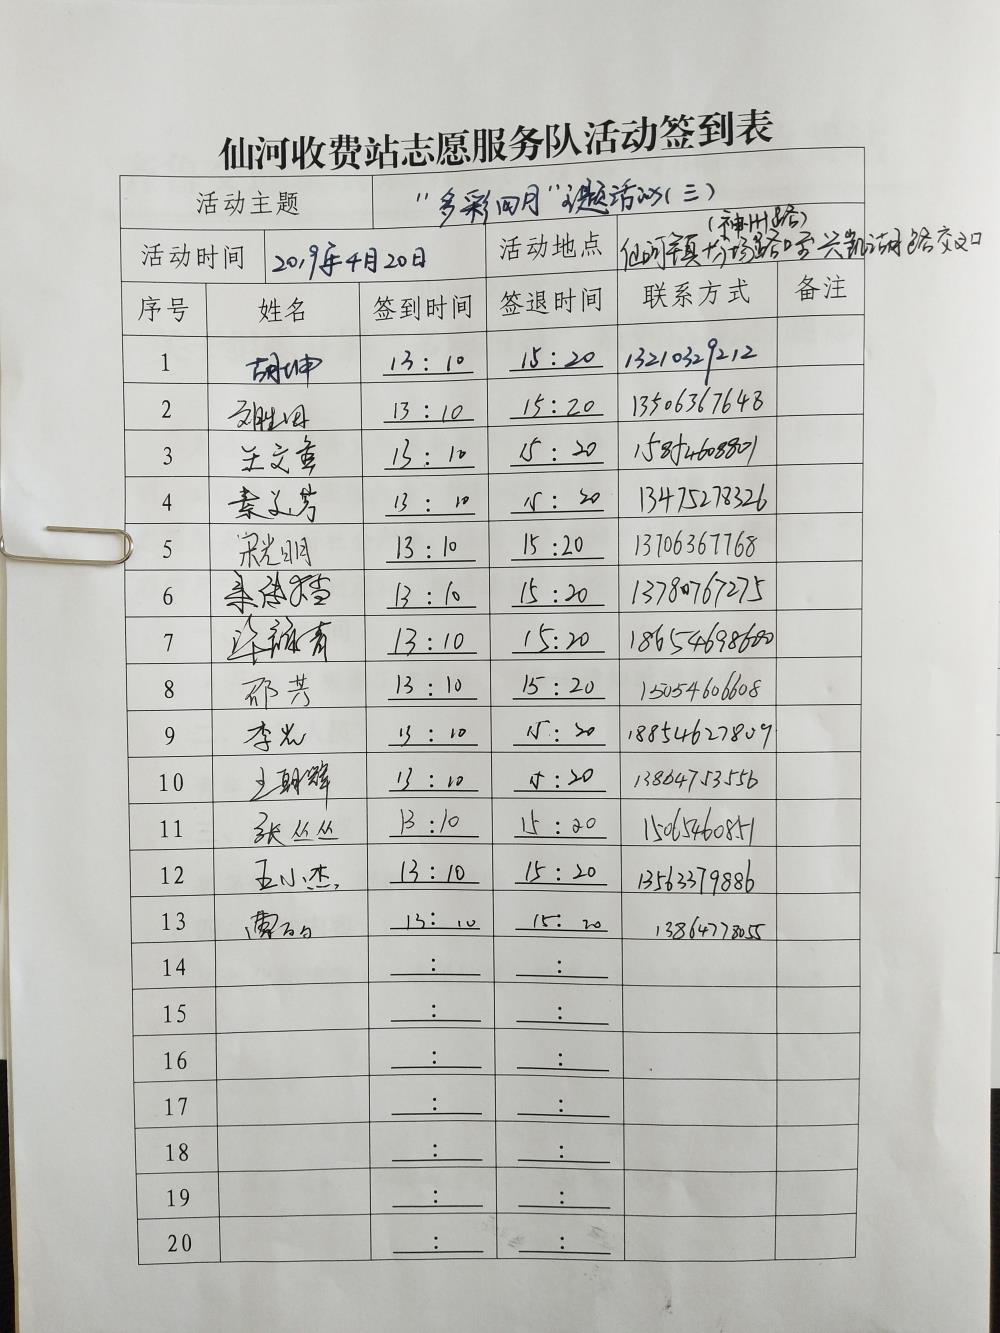 仙河收费站志愿服务队活动签到表
活动主题 "多彩四月"主题活动(三)
(神州路)
活动时间 2019年4月20日 活动地点 仙河镇 路与兴凯湖路交叉口
序号 姓名 签到时间 签退时间 联系方式 备注
1 胡坤 13:10 15:20 13210329212
2 13:10 15:20 13506367648
3 13:10 15:20 15854608801
4 秦文芳 13:10 15:20 13475278326
5 宋光明 13:10 15:20 13706367768
6 13:10 15:20 13780767275
7 13:10 15:20 18654698680
8 邵芸 13:10 15:20 15054606608
9 李岩 13:10 15:20 18854627809
10 王朝辉 13:10 15:20 13864753556
11 张丛丛 13:10 15:20 15065460851
12 王小杰 13:10 15:20 13563379886
13 13:10 15:20 13864778055
14 : :
15 : :
16 : :
17 : :
18 : :
19 : :
20 : :